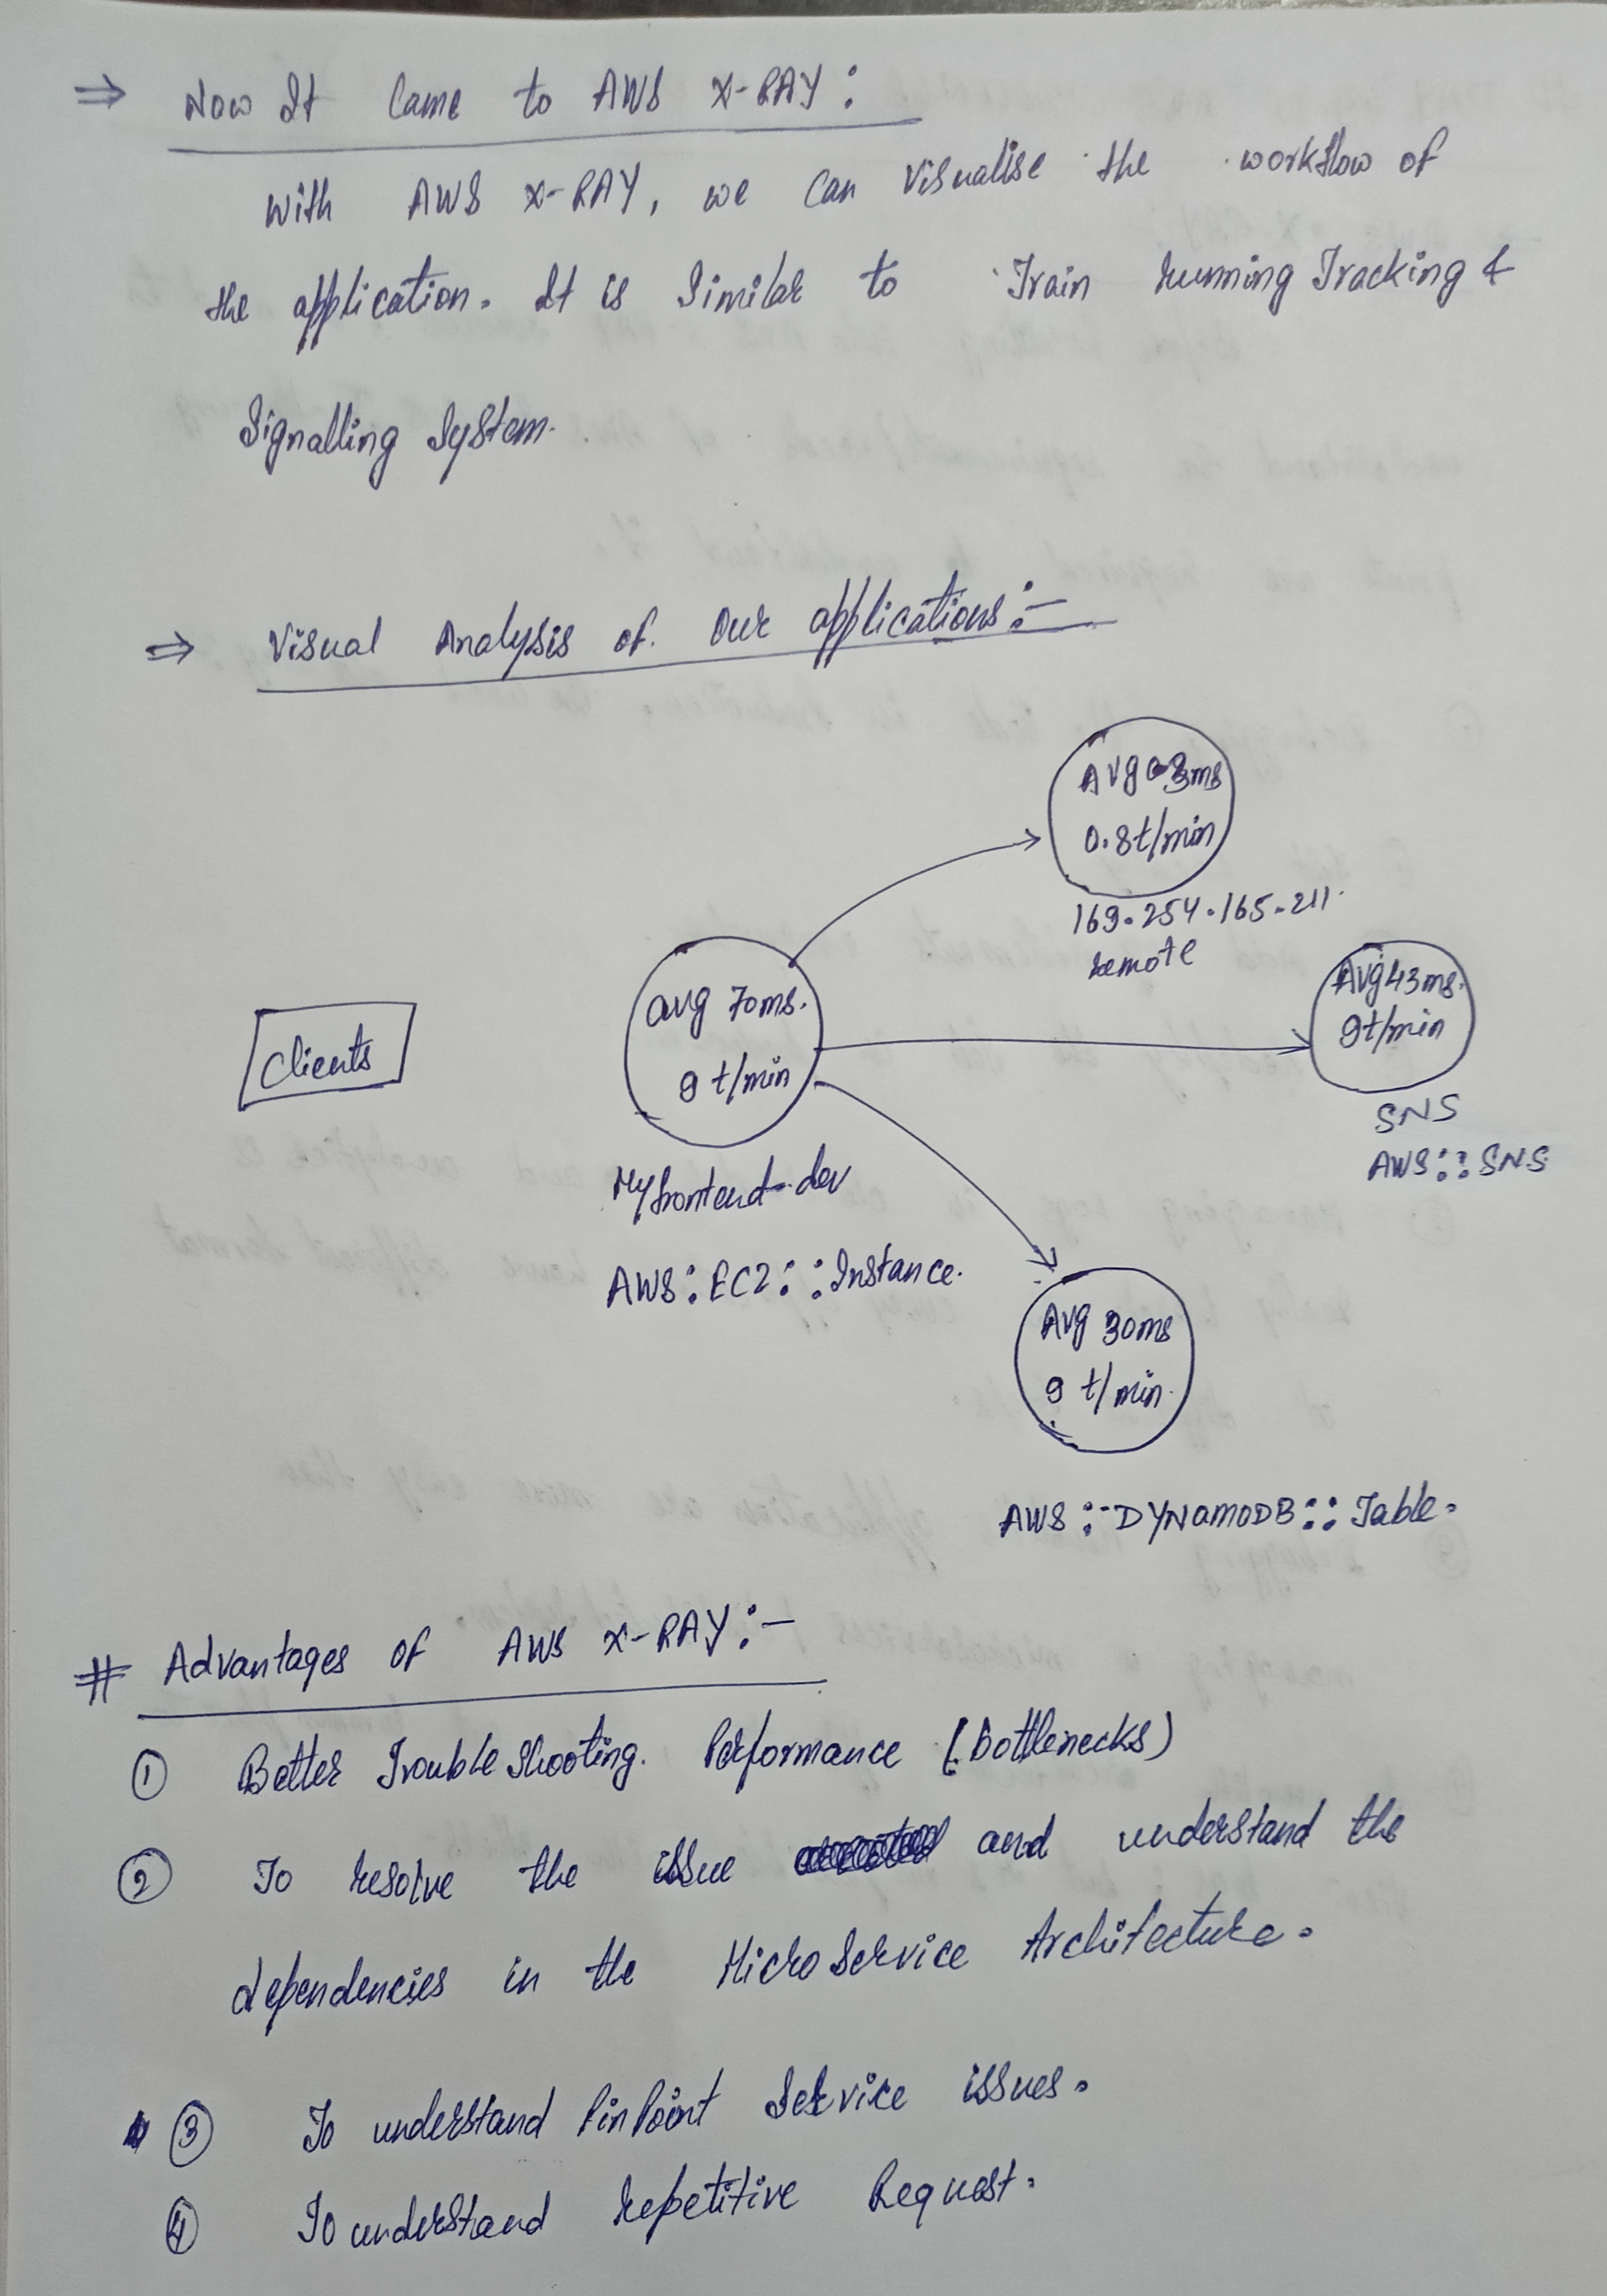 ⇒ Now It Came to AWS X-RAY:
With AWS X-RAY, we Can Visualise the workflow of
the application. It is Similar to Train running Tracking &
Signalling System.
⇒ Visual Analysis of Our applications:-
Avg 3ms
0.8t/min
169.254.165.211.
remote
Avg 43ms.
9t/min
SNS
AWS::SNS
avg 70ms.
9 t/min
Clients
Myfrontend-dev
AWS:EC2::Instance.
Avg 30ms
9 t/min.
AWS::DYNAMODB::Table.
# Advantages of AWS X-RAY:-
① Better Trouble Shooting. Performance (Bottlenecks)
② To resolve the issue and understand the
dependencies in the MicroService Architecture.
③ To understand PinPoint Service issues.
④ To understand repetitive Request.